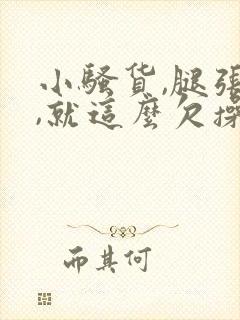 小騷货,腿張
,就這麼欠操
而其何